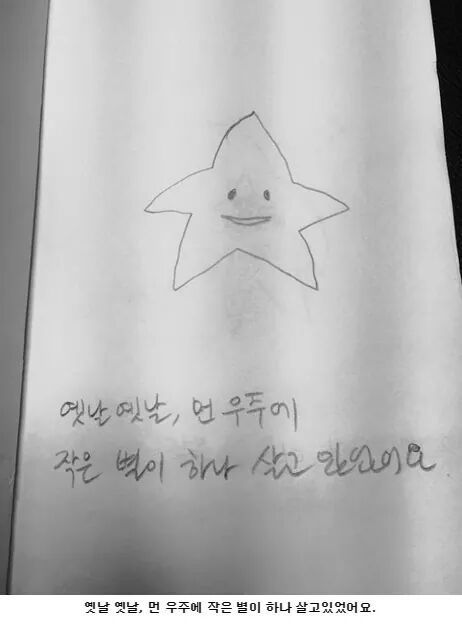 옛날 옛날, 먼 우주에
작은 별이 하나 살고 있었어요
옛날 옛날, 먼 우주에 작은 별이 하나 살고있었어요.